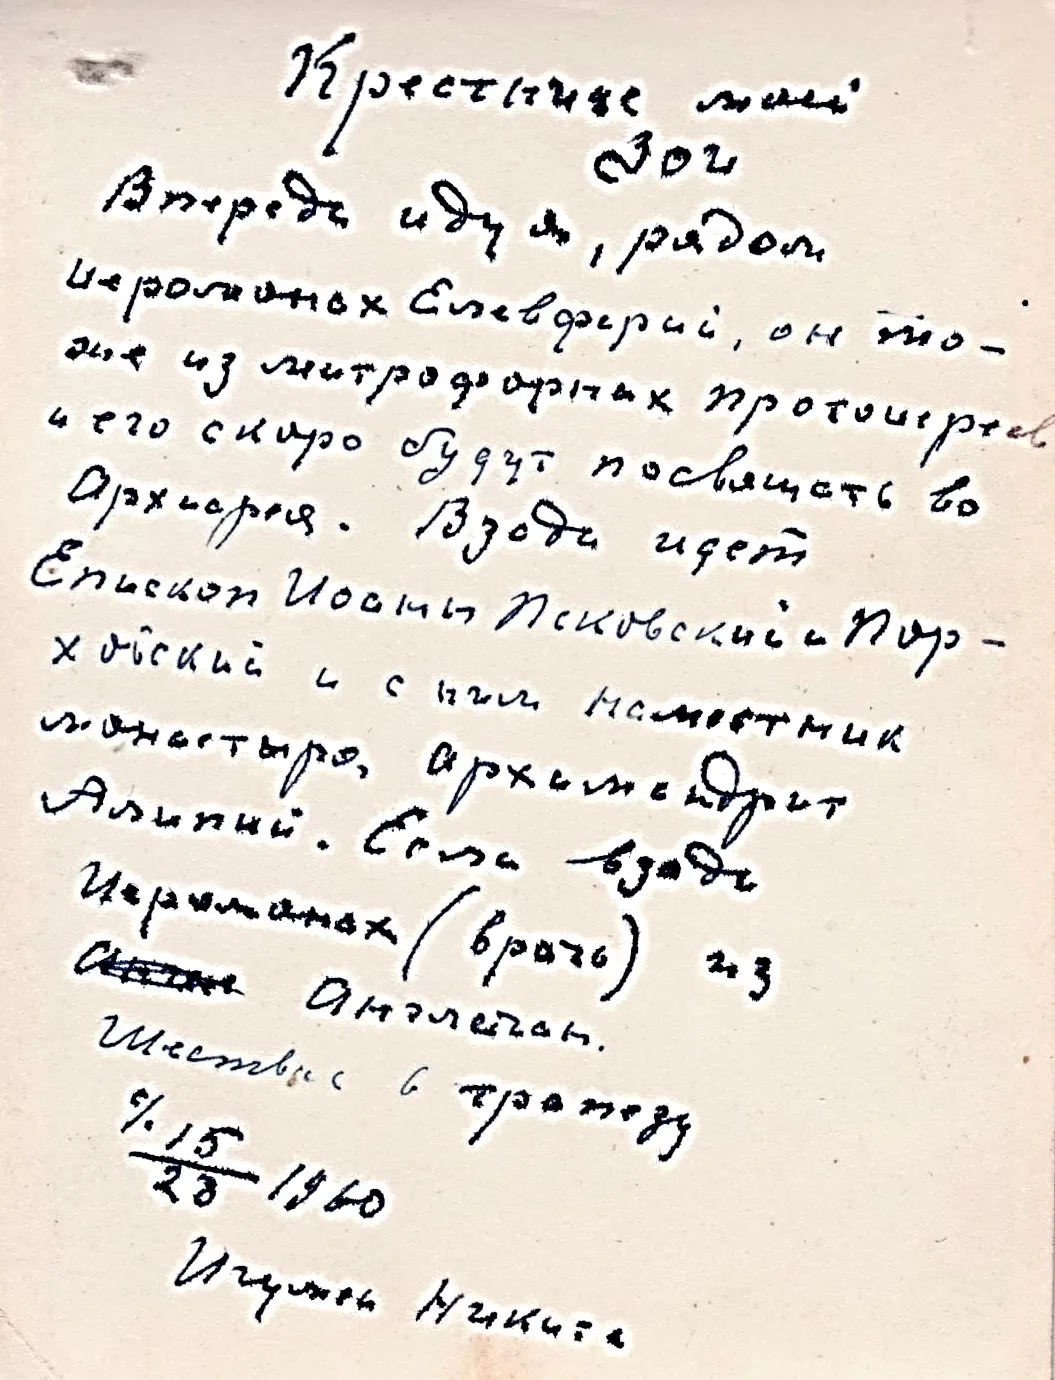 Крестнице моей
Зои
Впереди иду я, рядом
иеромонах Елевферий, он то-
же из митрофорных протоиереев
и его скоро будут посвящать во
Архиерея. Взади идет
Епископ Иоанн Псковский и Пор-
ховский и с ним наместник
монастыря, архимандрит
Алипий. Если взади
Иеромонах (врачь) из
Англичан.
Шествие в трапезу
15
28 1960
Игумен Никита